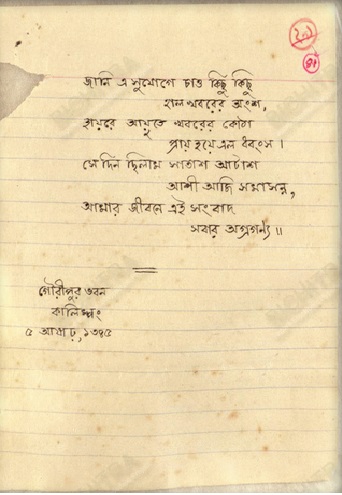 জানি এ সুযোগে চাও কিছু কিছু
হাল খবরের অংশ,
হায়রে আয়ুতে খবরের কোঠা
প্রায় হয়ে এল ধ্বংস।
সেদিন ছিলাম সাতাশা আটাশা
আশী আজি সমাসন্ন,
আমার জীবনে এই সংবাদ
সবার অগ্রগণ্য॥
গৌরীপুর ভবন
কালিম্পং
৫ আষাঢ়, ১৩৪৫